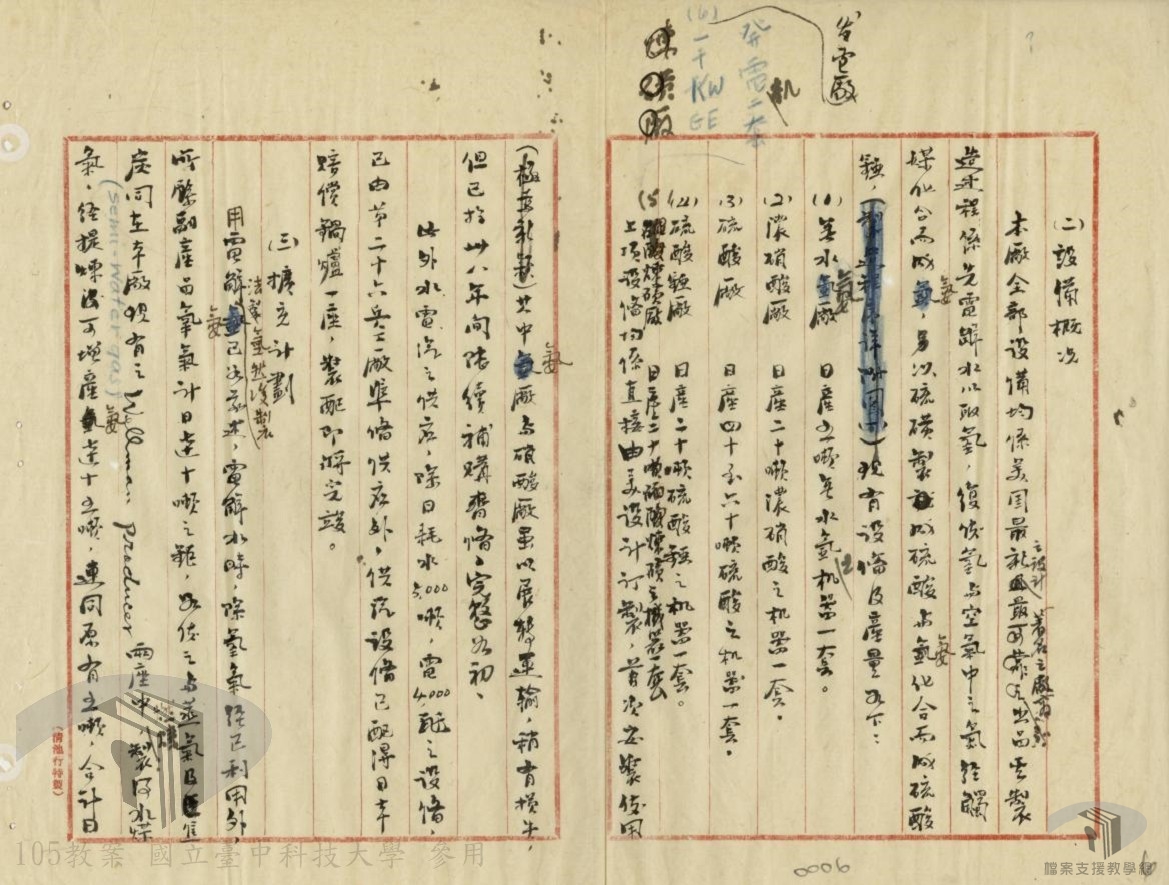 公電廠
發電二套
机
(6) 一千KW
GE
(二) 設備概況
本廠全部設備均係美國最新之設計最可靠之出品其製
著名之廠商
造步程係先電解水以取氫，復使氫与空氣中之氮經觸
媒化合而成氨，另以硫磺製成硫酸与氨化合而成硫酸
錏，現有設俻及產量如下：
(1) 無水氨廠　日產五噸無水氨机器一套。
(2) 濃硝酸廠　日產二十噸濃硝酸之机器一套。
(3) 硫酸廠　日產四十至六十噸硫酸之机器一套。
(4) 硫酸錏廠　日產二十噸硫酸錏之机器一套。
(5) 煉磺廠　日產二十噸煉磺之機器一套
上項設俻均係直接由美設計訂製，首次安裝使用
其中氨廠与硝酸廠虽以展轉運輸，稍有損失，
但已於卅八年間陸續補購齊俻，完整如初、
此外水電汽之供应，除日耗水5,000噸，電4,000瓩之設俻，
已由第二十六兵工廠準俻供应外，供汽設俻已配得日本
賠償鍋爐一座，裝配即將完竣。
(三) 擴充計劃
用電解法製氫然後製氨已如前述，電解水時，除氫氣經已利用外，
所餘副產品氧氣計日達十噸之鉅，如使之与蒸氣及焦
炭同在本廠現有之Wellman producer兩座中，製得水煤
(semi-water gas)
氣，經提煉後可增產氨達十五噸，連同原有五噸，合計日
0006
105教案 國立臺中科技大學 參用
檔案支援教學網